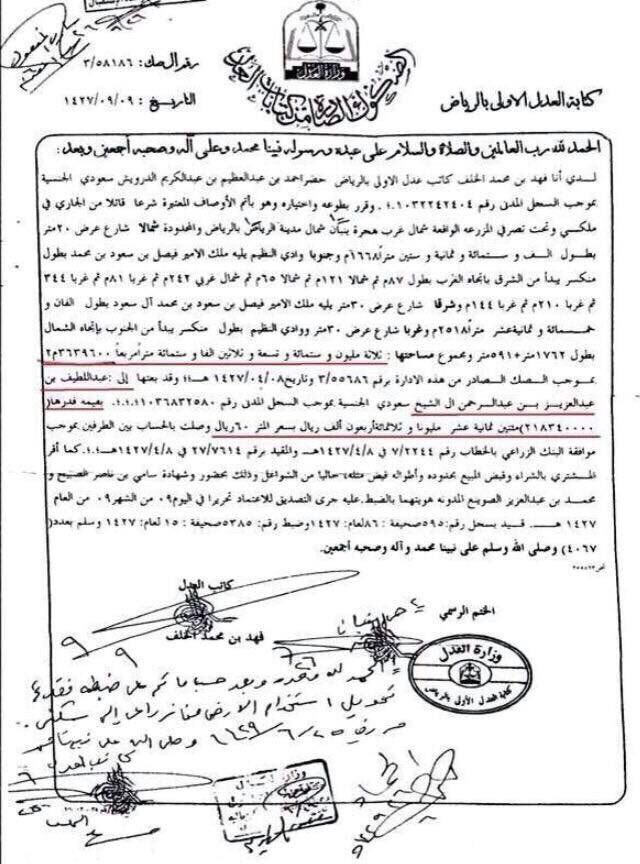 وزارة العدل
رقم الصك: ٣/٥٨١٨٦
كتابة العدل الاولى بالرياض
التاريخ: ١٤٢٧/٠٩/٠٩
الحمد لله رب العالمين والصلاة والسلام على عبده ورسوله نبينا محمد وعلى آله وصحبه أجمعين وبعد:
لدي أنا فهد بن محمد الخلف كاتب عدل الاولى بالرياض حضر احمد بن عبدالعظيم بن عبدالكريم الدرويش سعودي الجنسية
بموجب السجل المدنى رقم ١٠٣٢٢٤٢٤٠٤ وقرر بطوعه واختياره وهو بأتم الأوصاف المعتبرة شرعا قائلا من الجاري في
ملكي وتحت تصرفي المزرعه الواقعة شمال غرب هجرة بنبان شمال مدينة الرياض بالرياض والمحدودة شمالا شارع عرض ٢٠متر
بطول الف و ستمائة و ثمانية و ستين مترا ١٦٦٨م وجنوبا وادي النظيم يليه ملك الامير فيصل بن سعود بن محمد بطول
منكسر يبدأ من الشرق باتجاه الغرب بطول ٨٧م ثم شمالا ١٢١م ثم شمالا ٦٥م ثم شمال غربي ٢٤٢م ثم غربا ٨١م ثم غربا ٣٤٤
ثم غربا ٢١٠م ثم غربا ١٤٤م وشرقا شارع عرض ٣٠متر يليه ملك الامير فيصل بن سعود بن محمد آل سعود بطول الفان و
خمسمائة و ثمانية عشر مترا ٢٥١٨م وغربا شارع عرض ٣٠متر ووادي النظيم بطول منكسر يبدأ من الجنوب بإتجاه الشمال
بطول ١٧٦٢متر+٥٩١متر وبجموع مساحتها: ثلاثة مليون و ستمائة و تسعة و ثلاثين الفا و ستمائة مترا مربعا ٣٦٣٩٦٠٠م٢
بموجب الصك الصادر من هذه الادارة برقم ٣/٥٥٦٨٦ وتاريخ ١٤٢٧/٠٤/٠٨هـ وقد بعتها إلى: عبداللطيف بن
عبدالعزيز بن عبدالرحمن ال الشيخ سعودي الجنسية بموجب السجل المدني رقم ١٠٣٦٨٣٢٥٨٠ بقيمه قدرها(
٢١٨٣٤٠٠٠٠)مئتين ثمانية عشر مليونا و ثلاثمائة أربعون ألف ريال بسعر المتر ٦٠ريال وصلت بالحساب بين الطرفين بموجب
موافقة البنك الزراعي بالخطاب رقم ٧/٢٢٤٤ في ١٤٢٧/٤/٨هـ والمقيد برقم ٢٧/٧٦١٤ في ١٤٢٧/٤/٨هـ كما أقر
المشتري بالشراء وقبض المبيع بحدوده وأطواله قبض مثله خاليا من الشواغل وذلك بحضور وشهادة سامي بن ناصر الصنيع و
محمد بن عبدالعزيز الصويغ المدونه هويتهما بالضبط عليه جرى التصديق للاعتماد تحريرا في اليوم ٠٩ من الشهر ٠٩ من العام
١٤٢٧ هـ قيد بسجل رقم: ٥٩٥صحيفة: ٨٦لعام: ١٤٢٧ وضبط رقم: ٥٣٨٥صحيفة: ١٥لعام: ١٤٢٧ وسلم بعدد(
٤٠٦٧) وصلى الله وسلم على نبينا محمد وآله وصحبه أجمعين.
كاتب العدل
الختم الرسمي
فهد بن محمد الخلف
وزارة العدل
كتابة العدل الأولى بالرياض
الحمد لله وحده وبعد حسبما تم على ضبطه فقد تم
تحويل استخدام الارض من زراعي الى سكني
كاتب العدل